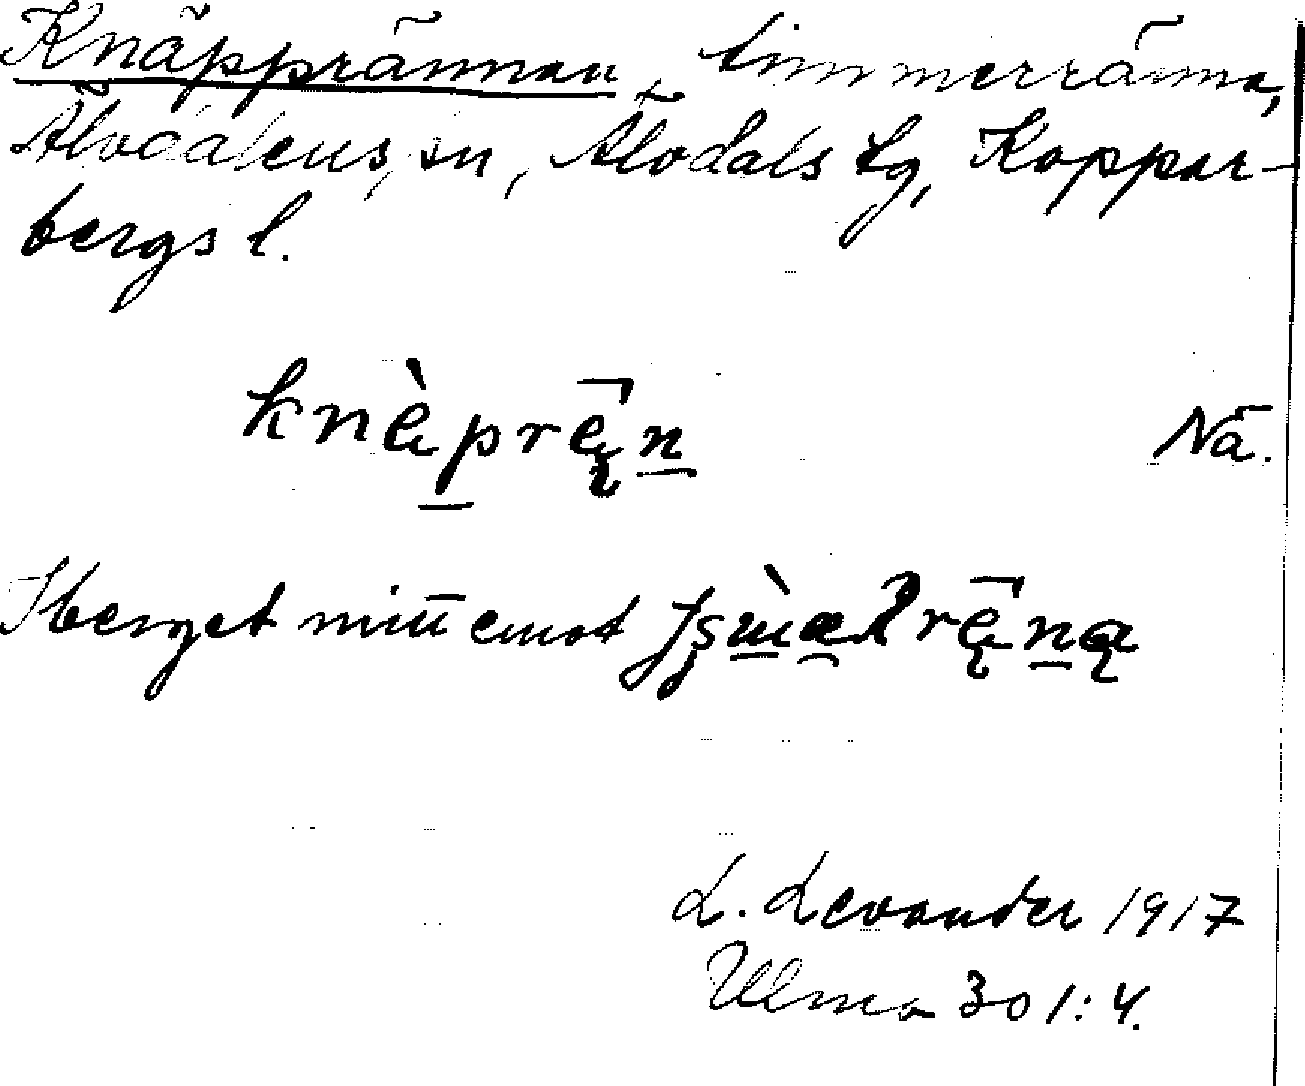 Knäpprännan, timmerränna,
Älvdalens sn, Älvdals tg, Koppar-
bergs l.
knäpręn Nä.
berget mitt emot
L. Levander 1917
Ulma 301:4.